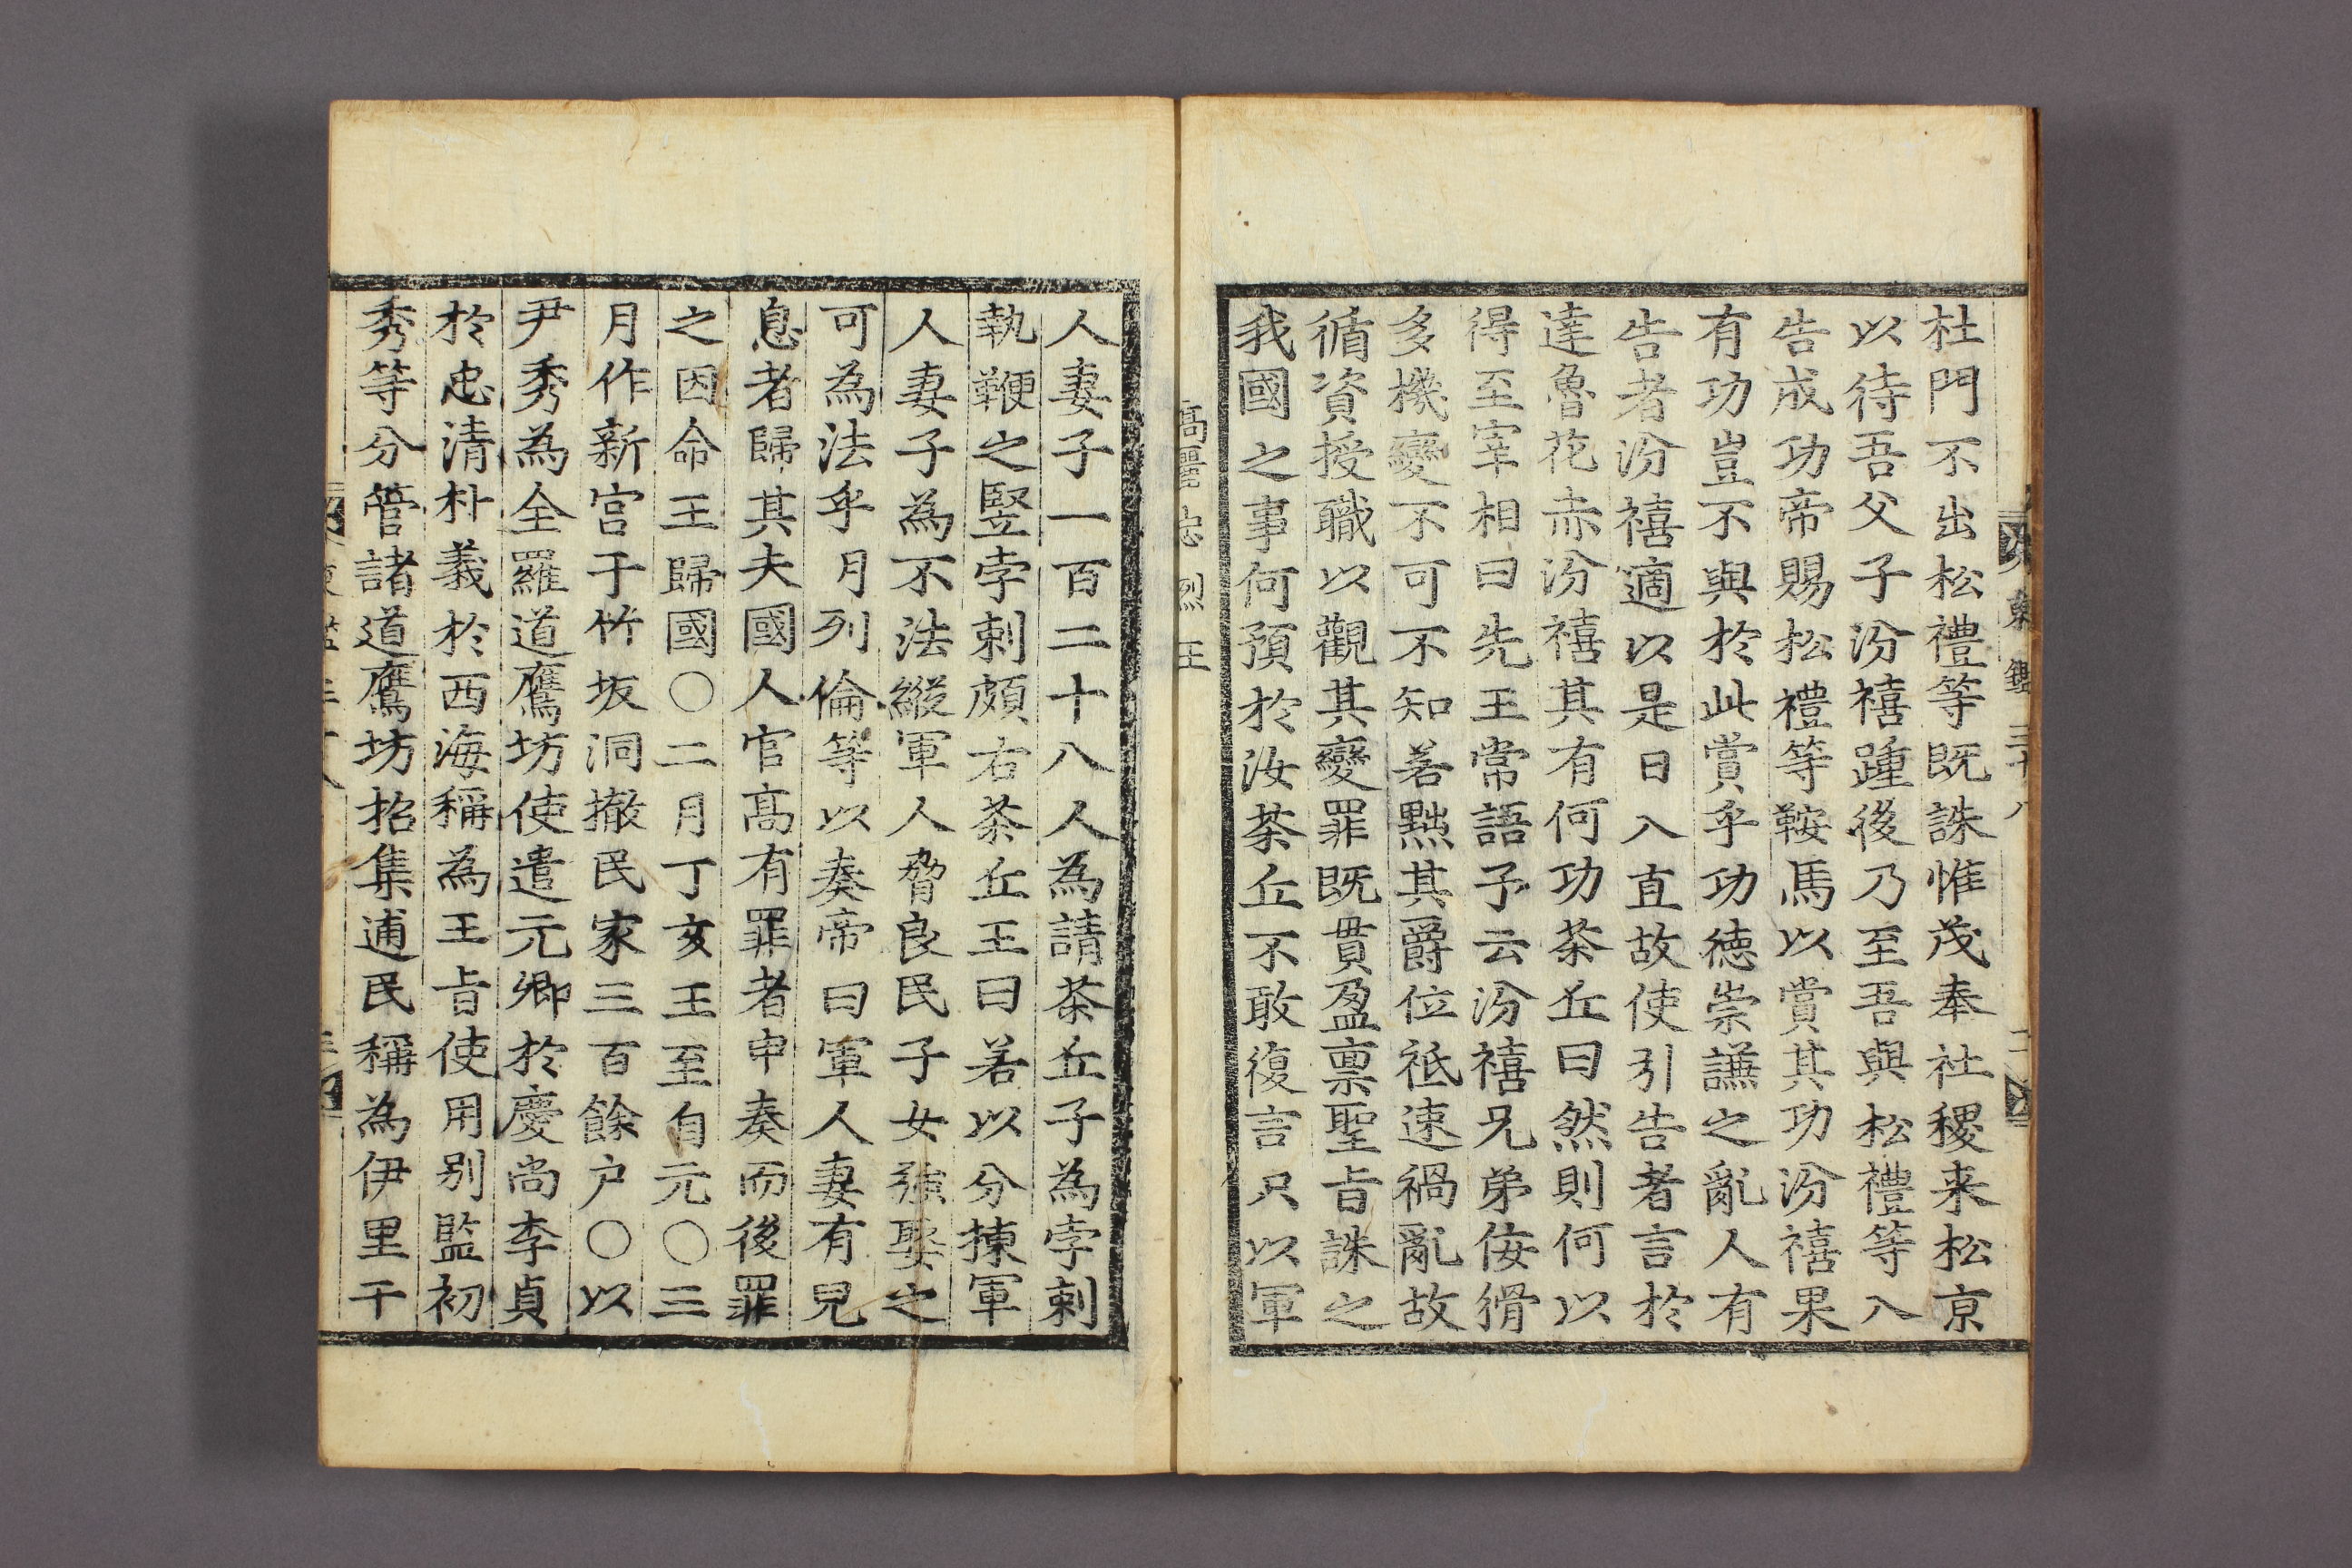 杜門不出松禮等既誅惟茂奉社稷来松京
以待吾父子汾禧踵後乃至吾與松禮等八
告成功帝賜松禮等鞍馬以賞其功汾禧果
有功豈不與於此賞乎功德崇謙之亂人有
告者汾禧適以是日入直故使引告者言於
達魯花赤汾禧其有何功茶丘曰然則何以
得至宰相曰先王常語予云汾禧兄弟侫猾
多機變不可不知若黜其爵位祗速禍亂故
循資授職以觀其變罪既貫盈禀聖旨誅之
我國之事何預於汝茶丘不敢復言只以軍
高麗忠烈王
人妻子一百二十八人為請茶丘子為孛剌
執鞭之竪孛剌頗右茶丘王曰若以分揀軍
人妻子為不法縱軍人脅良民子女強娶之
可為法乎月列倫等以奏帝曰軍人妻有兒
息者歸其夫國人官高有罪者申奏而後罪
之因命王歸國○二月丁亥王至自元○三
月作新宮于竹坂洞撤民家三百餘户○以
尹秀為全羅道鷹坊使遣元卿於慶尚李貞
於忠清朴義於西海稱為王旨使用别監初
秀等分管諸道鷹坊招集逋民稱為伊里干